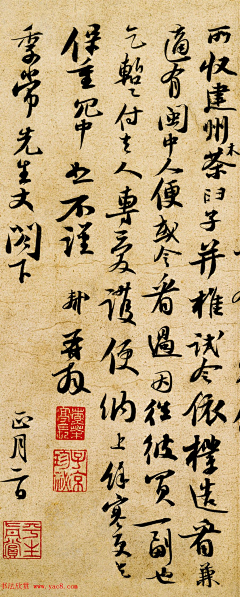 所收建州木茶臼子并椎試令依樣造看兼
適有閩中人便或令看過因往彼買一副也
乞蹔付去人專愛護便納上餘寒更乞
保重冗中恕不謹 軾再拜
季常先生丈閣下
正月二日
平生真賞
书法欣赏 www.yac8.com